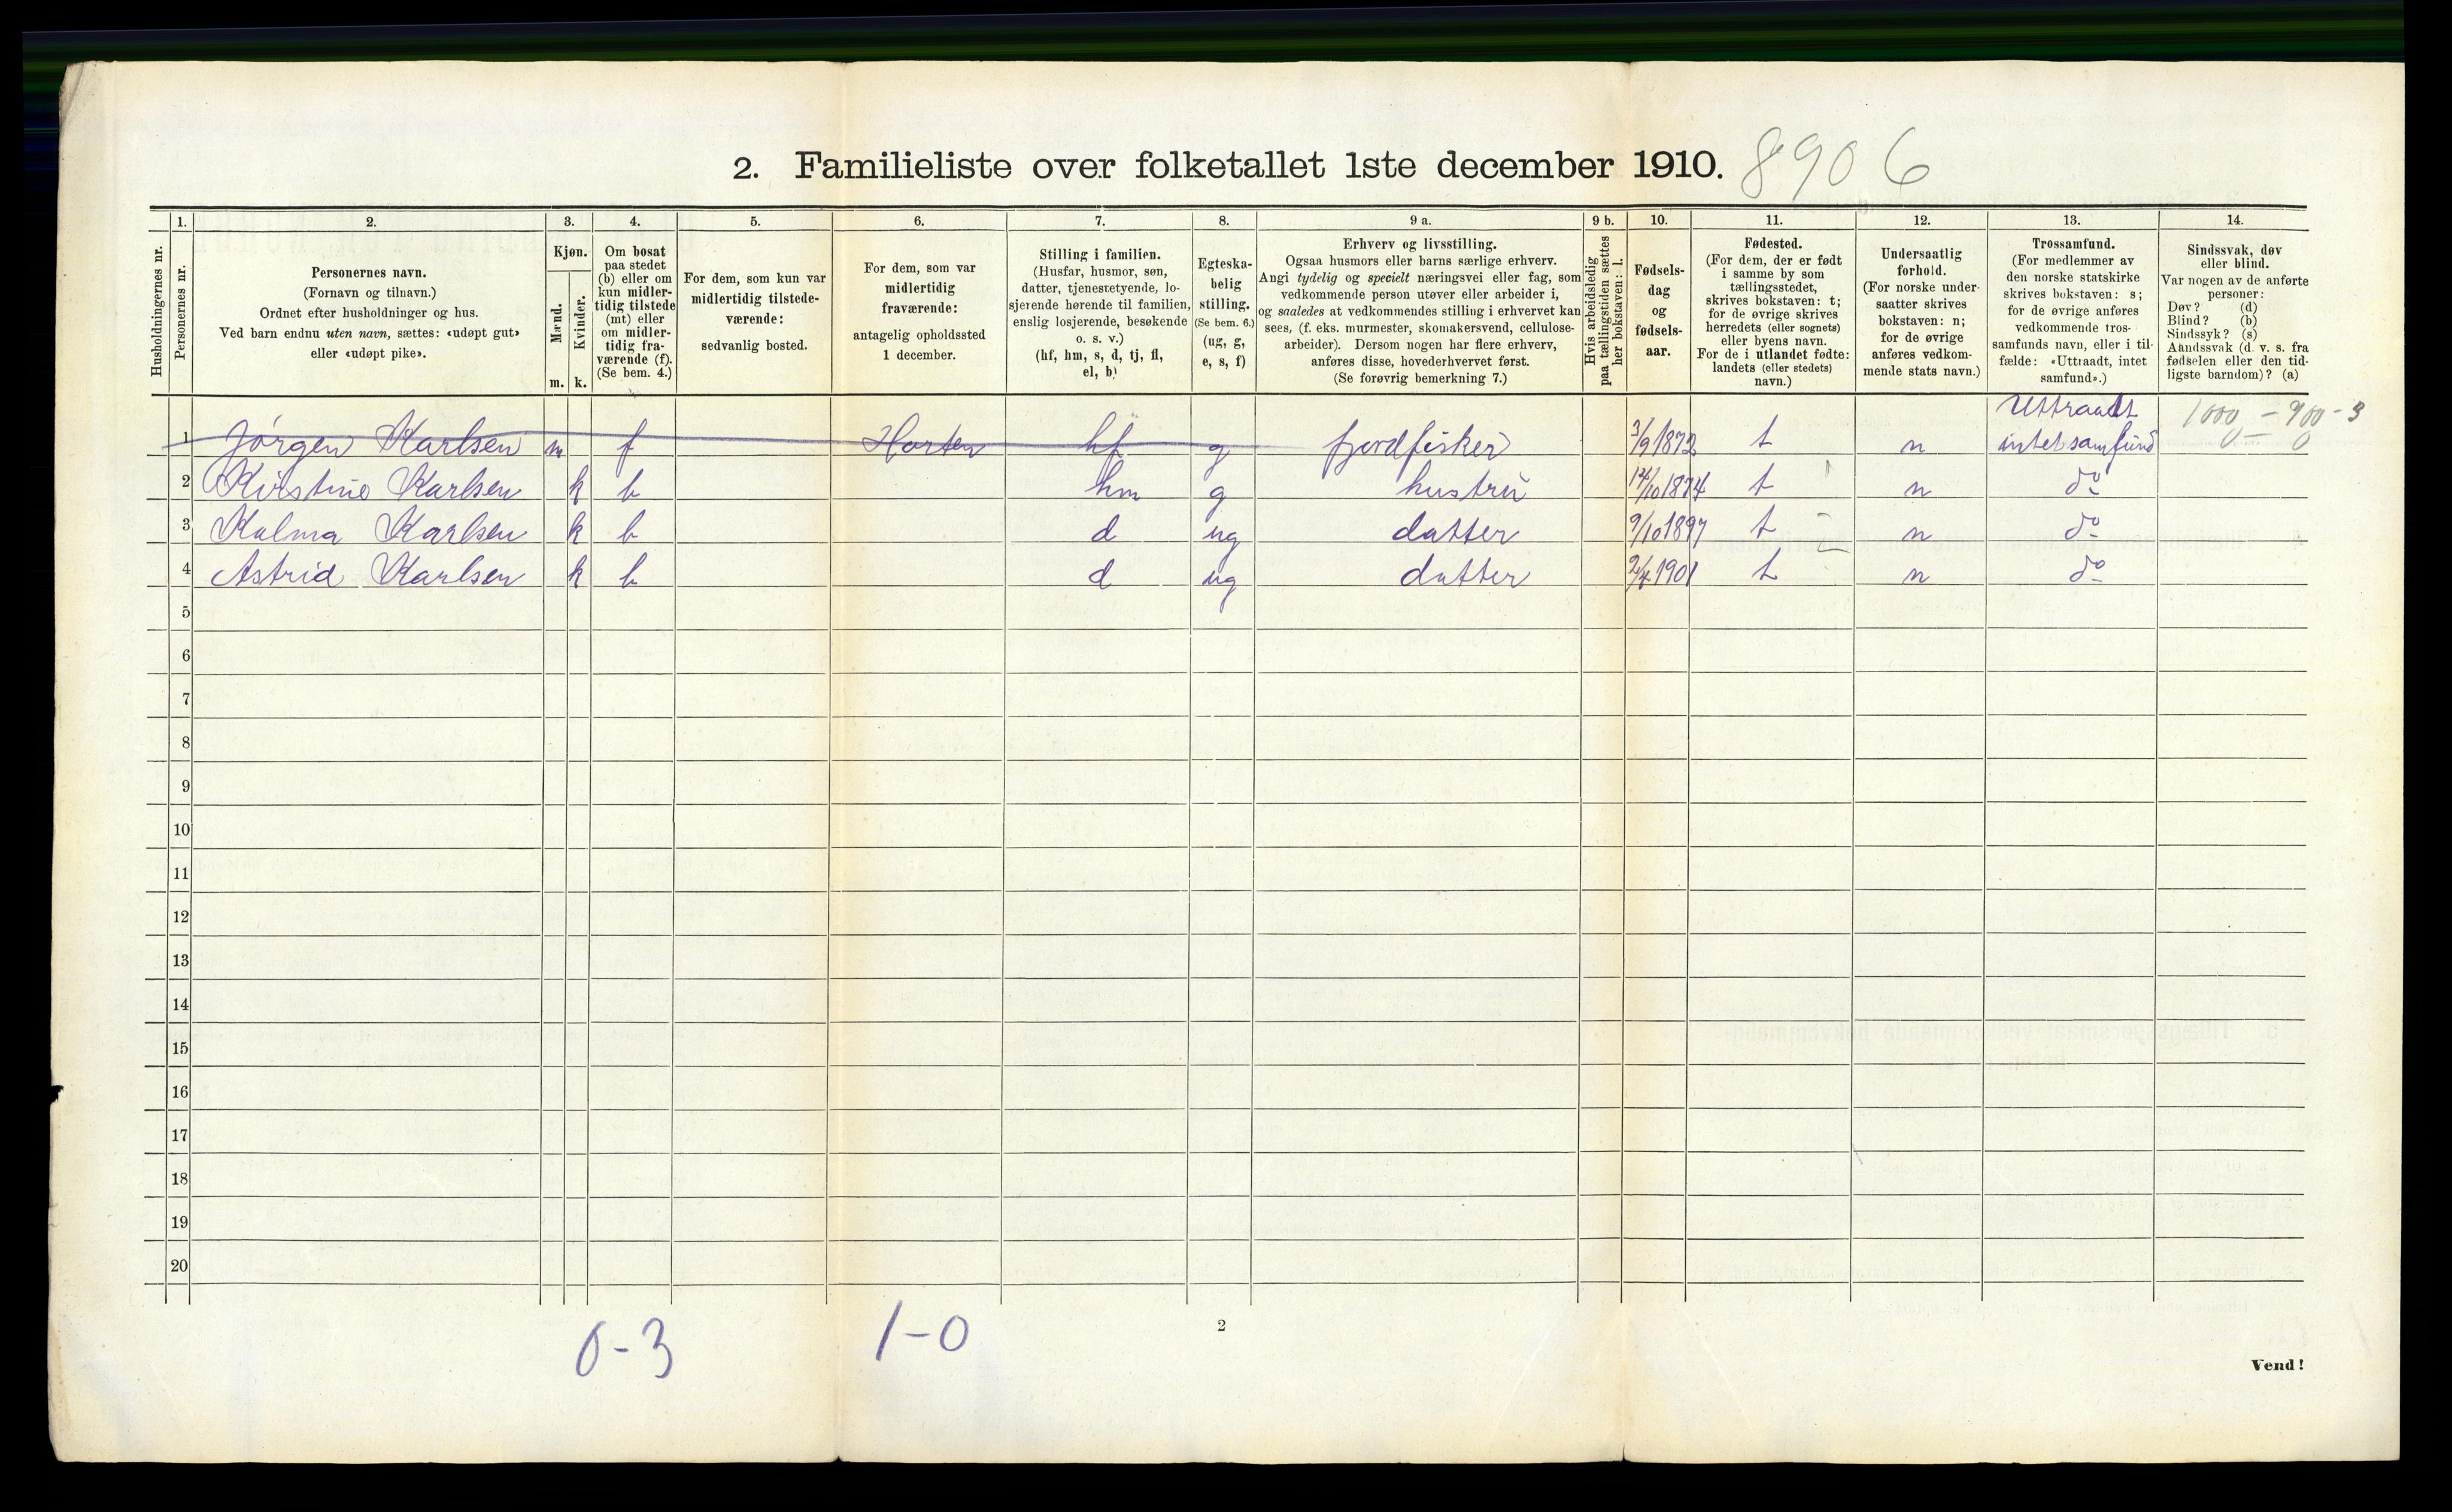 2. Familieliste over folketallet 1ste december 1910. 8906
1. 2. 3. 4. 5. 6. 7. 8. 9 a. 9 b. 10. 11. 12. 13. 14.
Husholdningernes nr.
Personernes nr.
Personernes navn.
(Fornavn og tilnavn.)
Ordnet efter husholdninger og hus.
Ved barn endnu uten navn, sættes: «udøpt gut»
eller «udøpt pike».
Kjøn.
Mænd.
Kvinder.
m. k.
Om bosat
paa stedet
(b) eller om
kun midler-
tidig tilstede
(mt) eller
om midler-
tidig fra-
værende (f).
(Se bem. 4.)
For dem, som kun var
midlertidig tilstede-
værende:
sedvanlig bosted.
For dem, som var
midlertidig
fraværende:
antagelig opholdssted
1 december.
Stilling i familien.
(Husfar, husmor, søn,
datter, tjenestetyende, lo-
sjerende hørende til familien,
enslig losjerende, besøkende
o. s. v.)
(hf, hm, s, d, tj, fl,
el, b)
Egteska-
belig
stilling.
(Se bem. 6.)
(ug, g,
e, s, f)
Erhverv og livsstilling.
Ogsaa husmors eller barns særlige erhverv.
Angi tydelig og specielt næringsvei eller fag, som
vedkommende person utøver eller arbeider i,
og saaledes at vedkommendes stilling i erhvervet kan
sees, (f. eks. murmester, skomakersvend, cellulose-
arbeider). Dersom nogen har flere erhverv,
anføres disse, hovederhvervet først.
(Se forøvrig bemerkning 7.)
Hvis arbeidsledig
paa tællingstiden sættes
her bokstaven: l.
Fødsels-
dag
og
fødsels-
aar.
Fødested.
(For dem, der er født
i samme by som
tællingsstedet,
skrives bokstaven: t;
for de øvrige skrives
herredets (eller sognets)
eller byens navn.
For de i utlandet fødte:
landets (eller stedets)
navn.)
Undersaatlig
forhold.
(For norske under-
saatter skrives
bokstaven: n;
for de øvrige
anføres vedkom-
mende stats navn.)
Trossamfund.
(For medlemmer av
den norske statskirke
skrives bokstaven: s;
for de øvrige anføres
vedkommende tros-
samfunds navn, eller i til-
fælde: «Uttraadt, intet
samfund».)
Sindssvak, døv
eller blind.
Var nogen av de anførte
personer:
Døv? (d)
Blind? (b)
Sindssyk? (s)
Aandssvak (d. v. s. fra
fødselen eller den tid-
ligste barndom)? (a)
Uttraadt 1000 - 900 - 3
1 Jørgen Karlsen m f Horten hf g fjordfisker 3/9 1872 t n intet samfund 0 - 0
2 Kirstine Karlsen k b hm g hustru 14/10 1874 t n do
3 Kalma Karlsen k b d ug datter 9/10 1897 t n do
4 Astrid Karlsen k b d ug datter 2/4 1901 t n do
5
6
7
8
9
10
11
12
13
14
15
16
17
18
19
20
0-3 1-0 2
Vend!